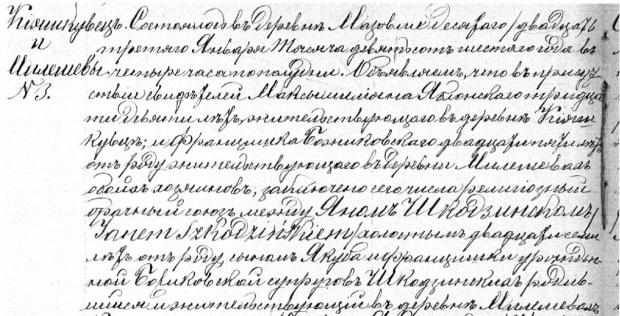 Княжикувецъ. Состоялось въ деревнѣ Мазовше десятаго/двадцать
и третяго Января тысяча девятьсотъ шестаго года въ
Милешевы четыре часа пополудни. Объявляемъ, что въ присут
№ 3. ствіи свидѣтелей Максимиліана Яблонскаго тридцати
девяти лѣтъ, жительствующаго въ деревнѣ
и Францишка двадцати лѣтъ
отъ роду жительствующаго въ деревни Милешевахъ
обоихъ хозяиновъ; заключено сего числа религіозный
брачный союзъ между Яномъ Шкодзинскимъ/
Janem Szkodzińskiem/ холостымъ двадцати семи
лѣтъ отъ роду, сыномъ Якуба и Францишки урожден
ной супруговъ Шкодзинскихъ, родив
шимся и жительствующій въ деревнѣ Милешевахъ